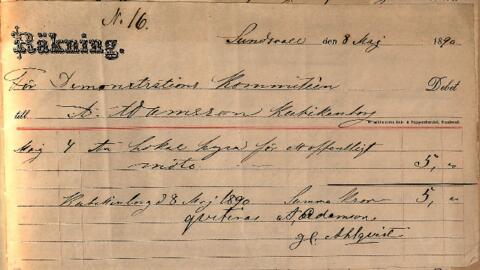 N. 16.
Räkning. Sundsvall den 8 Maj 1890
För Demonstrations Kommitéen Debet
till A. Adamsson Kubikenborg
Maj 4 Till Lokal hyra för ett offentligt
möte 5, "
Kubikenborg d 8 Maj 1890 Summa Kronor 5, "
qvitteras A. Adamsson
g. Ahlqvist